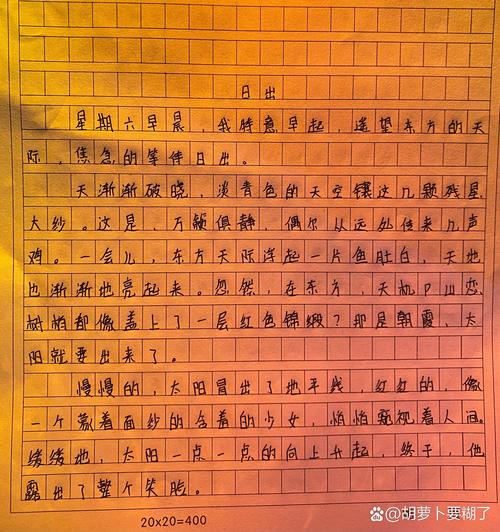 日出
星期六早晨，我特意早起，遥望东方的天
际，焦急的等待日出。
天渐渐破晓，淡青色的天空镶这几颗残星，
大纱。这是，万籁俱静，偶尔从远处传来几声
鸡。一会儿，东方天际浮起一片鱼肚白，天地
也渐渐地亮起来。忽然，在东方，天机
树梢都像盖上了一层红色锦缎？那是朝霞，太
阳就要出来了。
慢慢的，太阳冒出了地平线，红红的，像
一个蒙着面纱的含着的少女，悄悄窥视着人间。
缓缓地，太阳一点一点的向上升起，终于，他
露出了整个笑脸。
20x20=400
胡萝卜要糊了